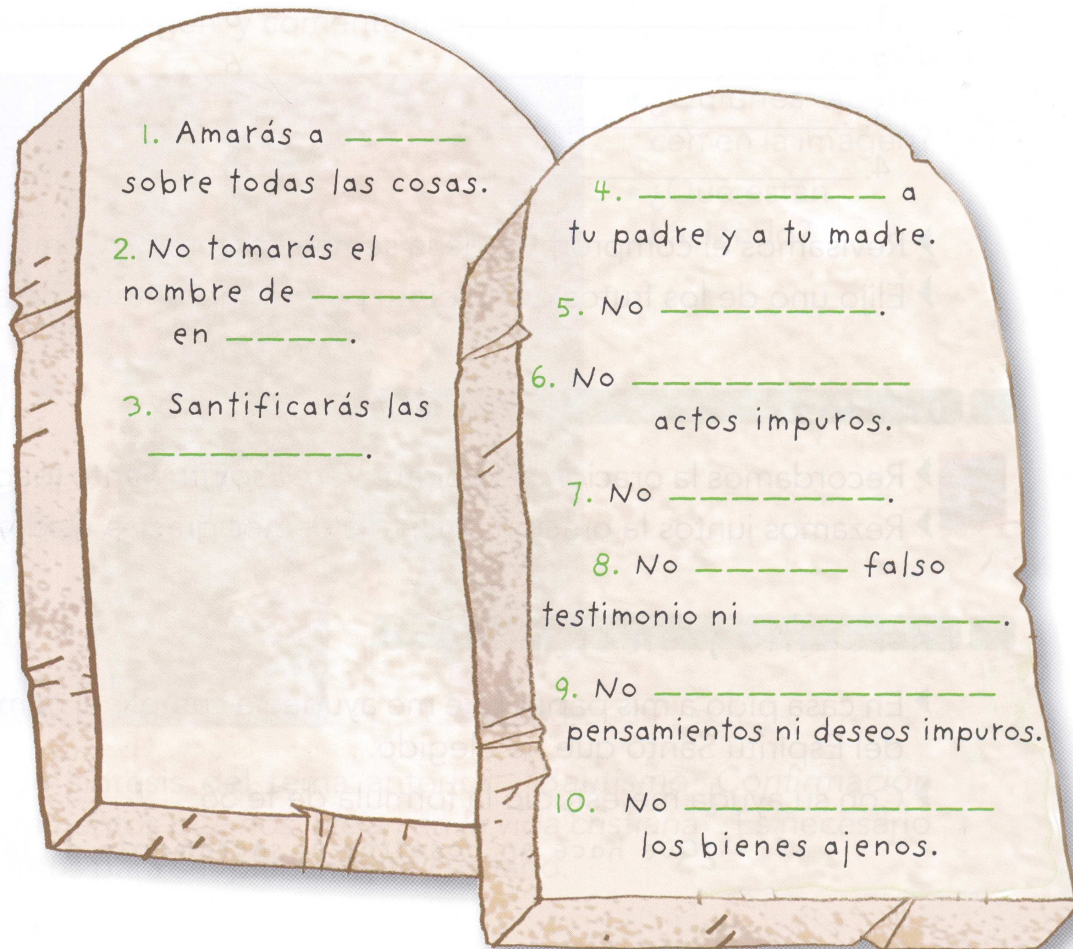 1. Amarás a _ _ _ _
sobre todas las cosas.
2. No tomarás el
nombre de _ _ _ _
en _ _ _ _.
3. Santificarás las
_ _ _ _ _ _ _.
4. _ _ _ _ _ _ _ _ a
tu padre y a tu madre.
5. No _ _ _ _ _ _ _.
6. No _ _ _ _ _ _ _ _ _
actos impuros.
7. No _ _ _ _ _ _ _.
8. No _ _ _ _ _ falso
testimonio ni _ _ _ _ _ _ _ _.
9. No _ _ _ _ _ _ _ _ _ _ _
pensamientos ni deseos impuros.
10. No _ _ _ _ _ _ _ _ _ _
los bienes ajenos.